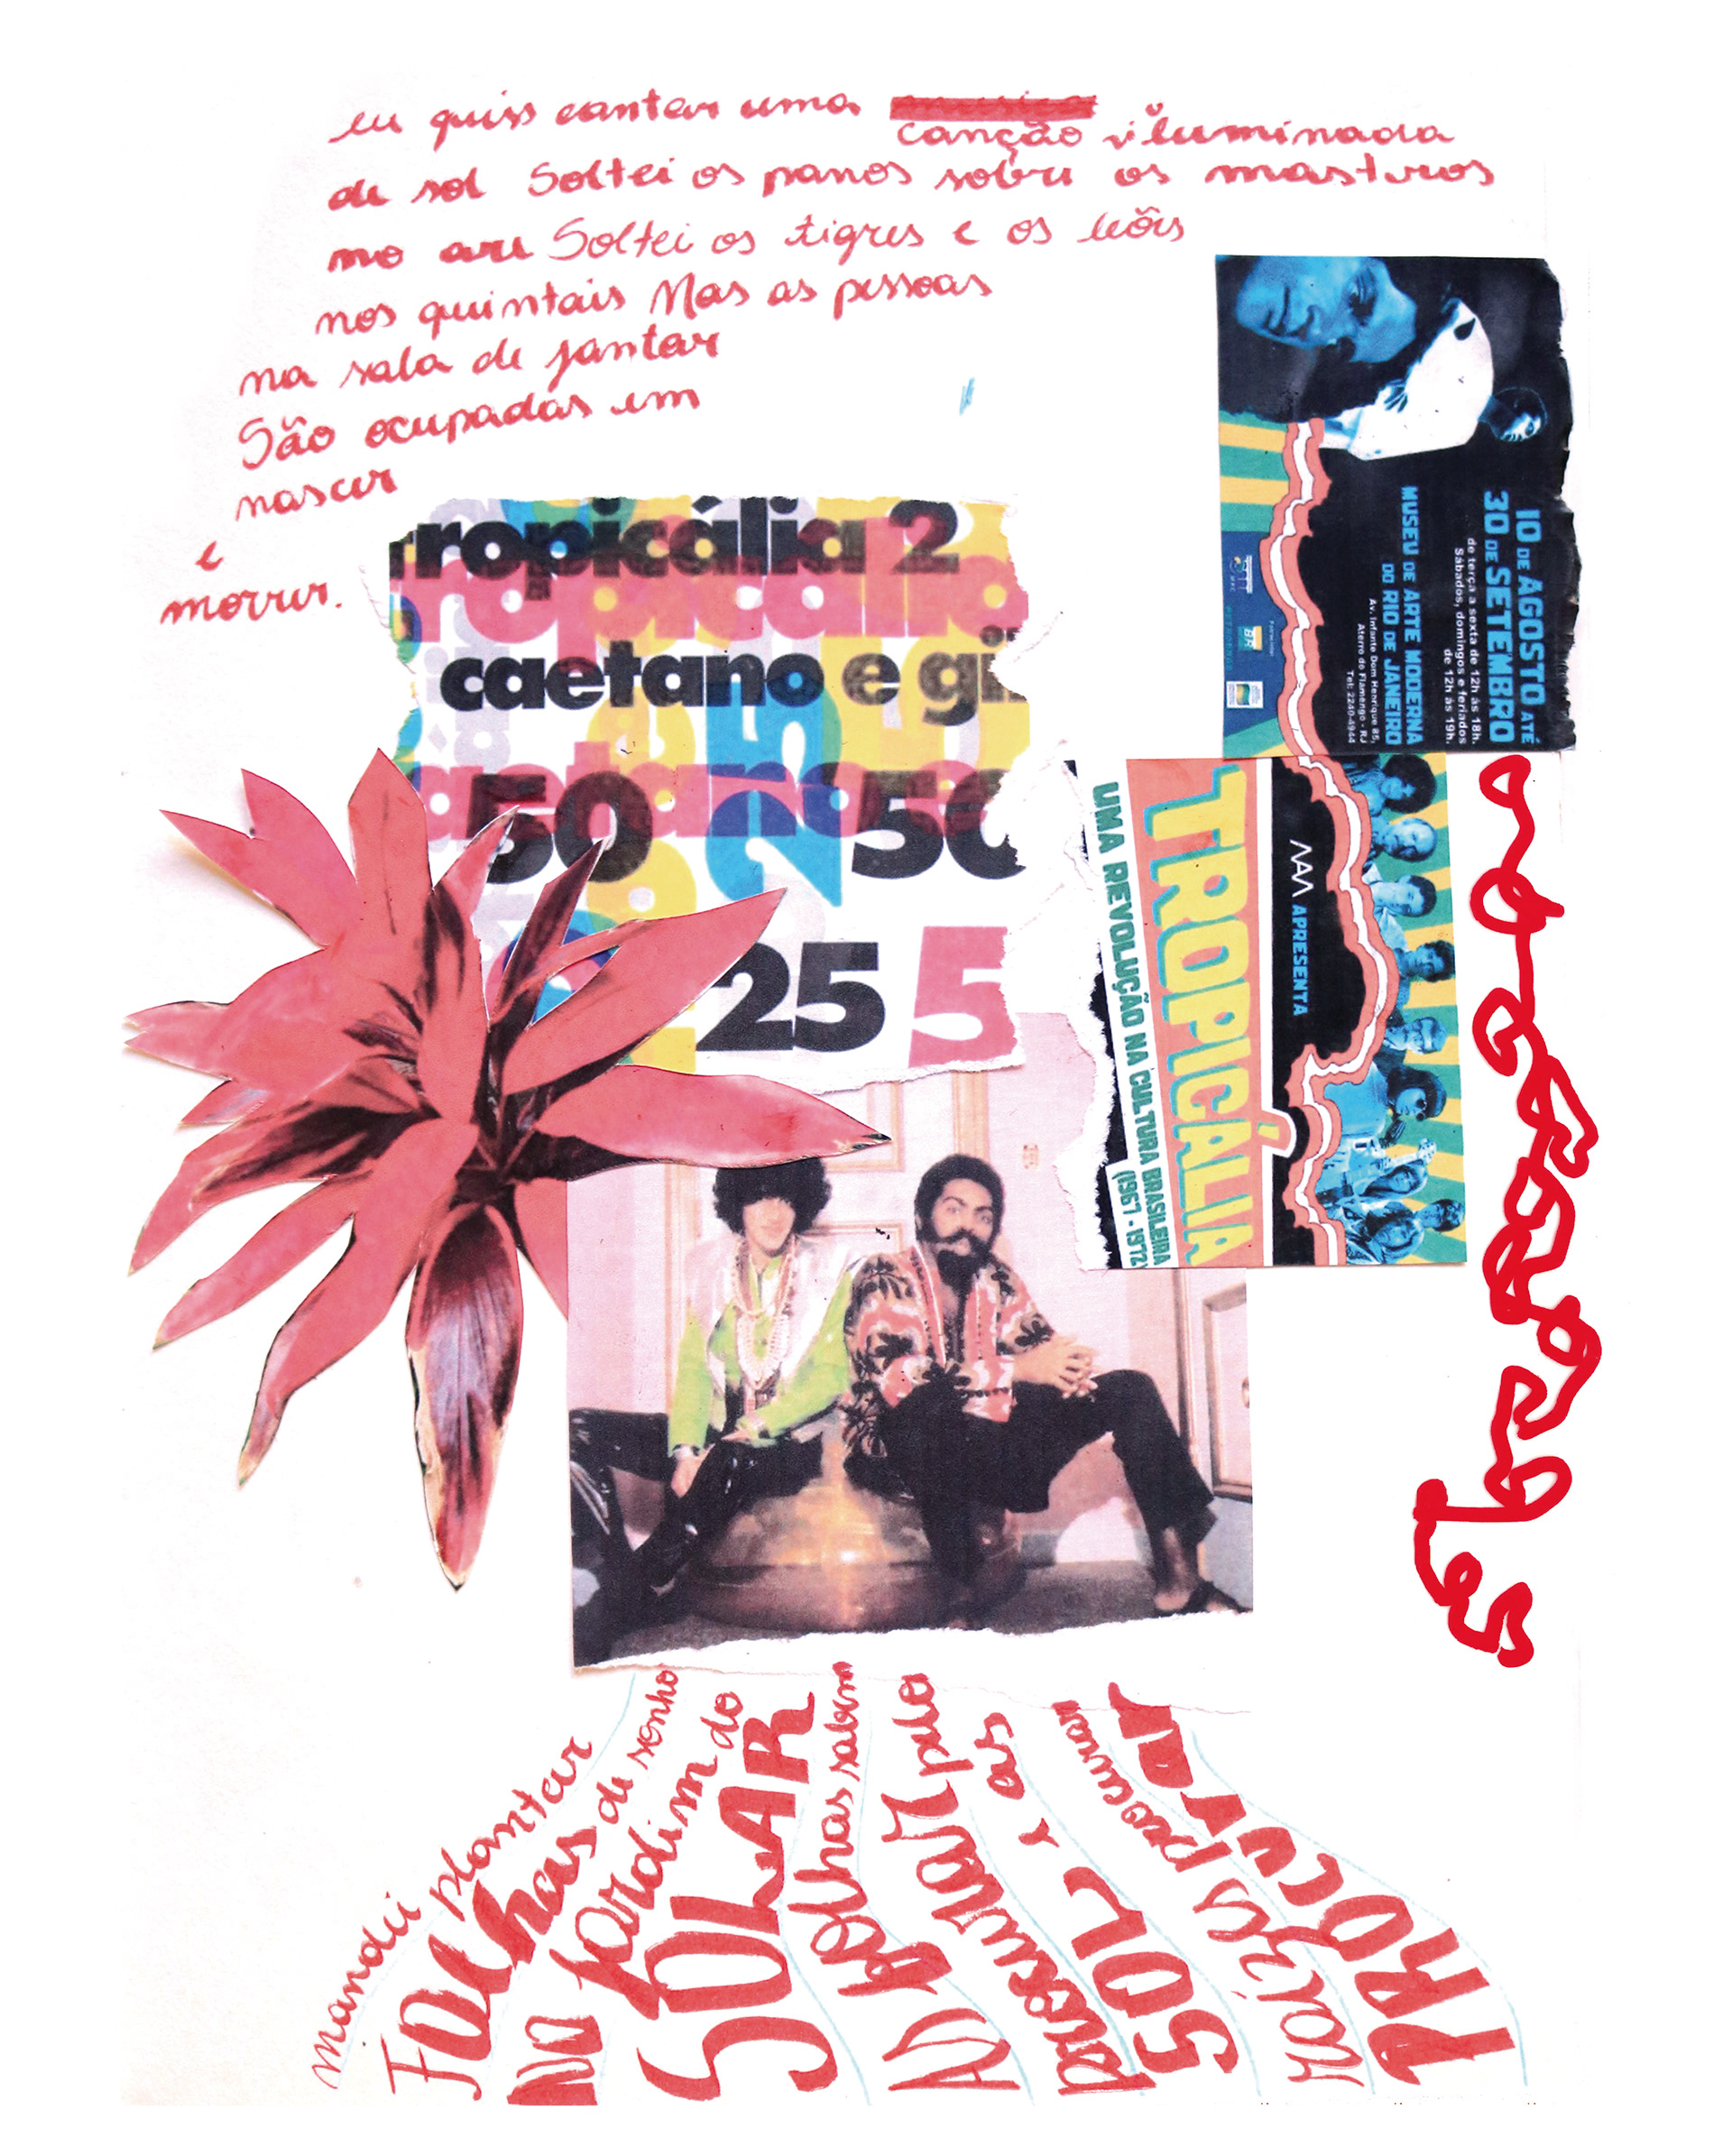 eu quiss cantar uma
canção iluminada
de sol Soltei os panos sobre os mastros
no ar Soltei os tigres e os leões
nos quintais Mas as pessoas
na sala de jantar
São ocupadas em
nascer
e
morrer.
ropicália 2
ropicália
caetano e gi
50 25 50
25 5
10 DE AGOSTO ATÉ
30 DE SETEMBRO
de terça a sexta de 12h às 18h.
Sábados, domingos e feriados
de 12h às 19h.
MUSEU DE ARTE MODERNA
DO RIO DE JANEIRO
Av. Infante Dom Henrique 85,
Aterro do Flamengo - RJ
Tel: 2240-4944
APRESENTA
TROPICÁLIA
UMA REVOLUÇÃO NA CULTURA BRASILEIRA
(1967 - 1972
mandei plantar
FOLhas de sonho
NO jardim do
SOLAR
AS folhas sabem
procurar pelo
SOL e as
raízes procurar
PROCURAR